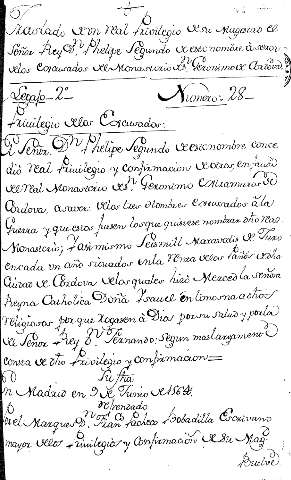 Traslado de un Real Privilegio de su Magestad el
Señor Rey Dn Phelipe Segundo de este nombre, a favor
de los escusados de el Monasterio de Sn Geronimo de Cordova.
Legajo - 2º Numero - 28 -
Privilegio de los Escusados.
El Señor Dn Phelipe Segundo de este nombre conce
dió Real Privilegio y confirmacion de otras, en favor
de el Real Monasterio de Sn Geronimo extramuros de
Cordova, a saver de los tres hombres escusados a la
Guerra y que estos fuesen los que quisiese nombrar dho Real
Monasterio; y assimismo Seis mill Maravedis de Juro
en cada un año situados en la Renta de los Paños de dha
Ciudad de Cordova de los quales hizo Merced la señora
Reyna Catholica Doña Isavel en limosna a dhos
religiosos por que rogasen a Dios por su salud y por la
de el Señor Rey Dn Fernando: segun mas largamente
consta de dho Privilegio y confirmacion =
Su fha
En Madrid en 9 de Junio de 1562.
Refrendado
Por el Marques Dn Franco Pacheco Bobadilla Escrivano
mayor de los Privilegios y Confirmacion de Su Magd